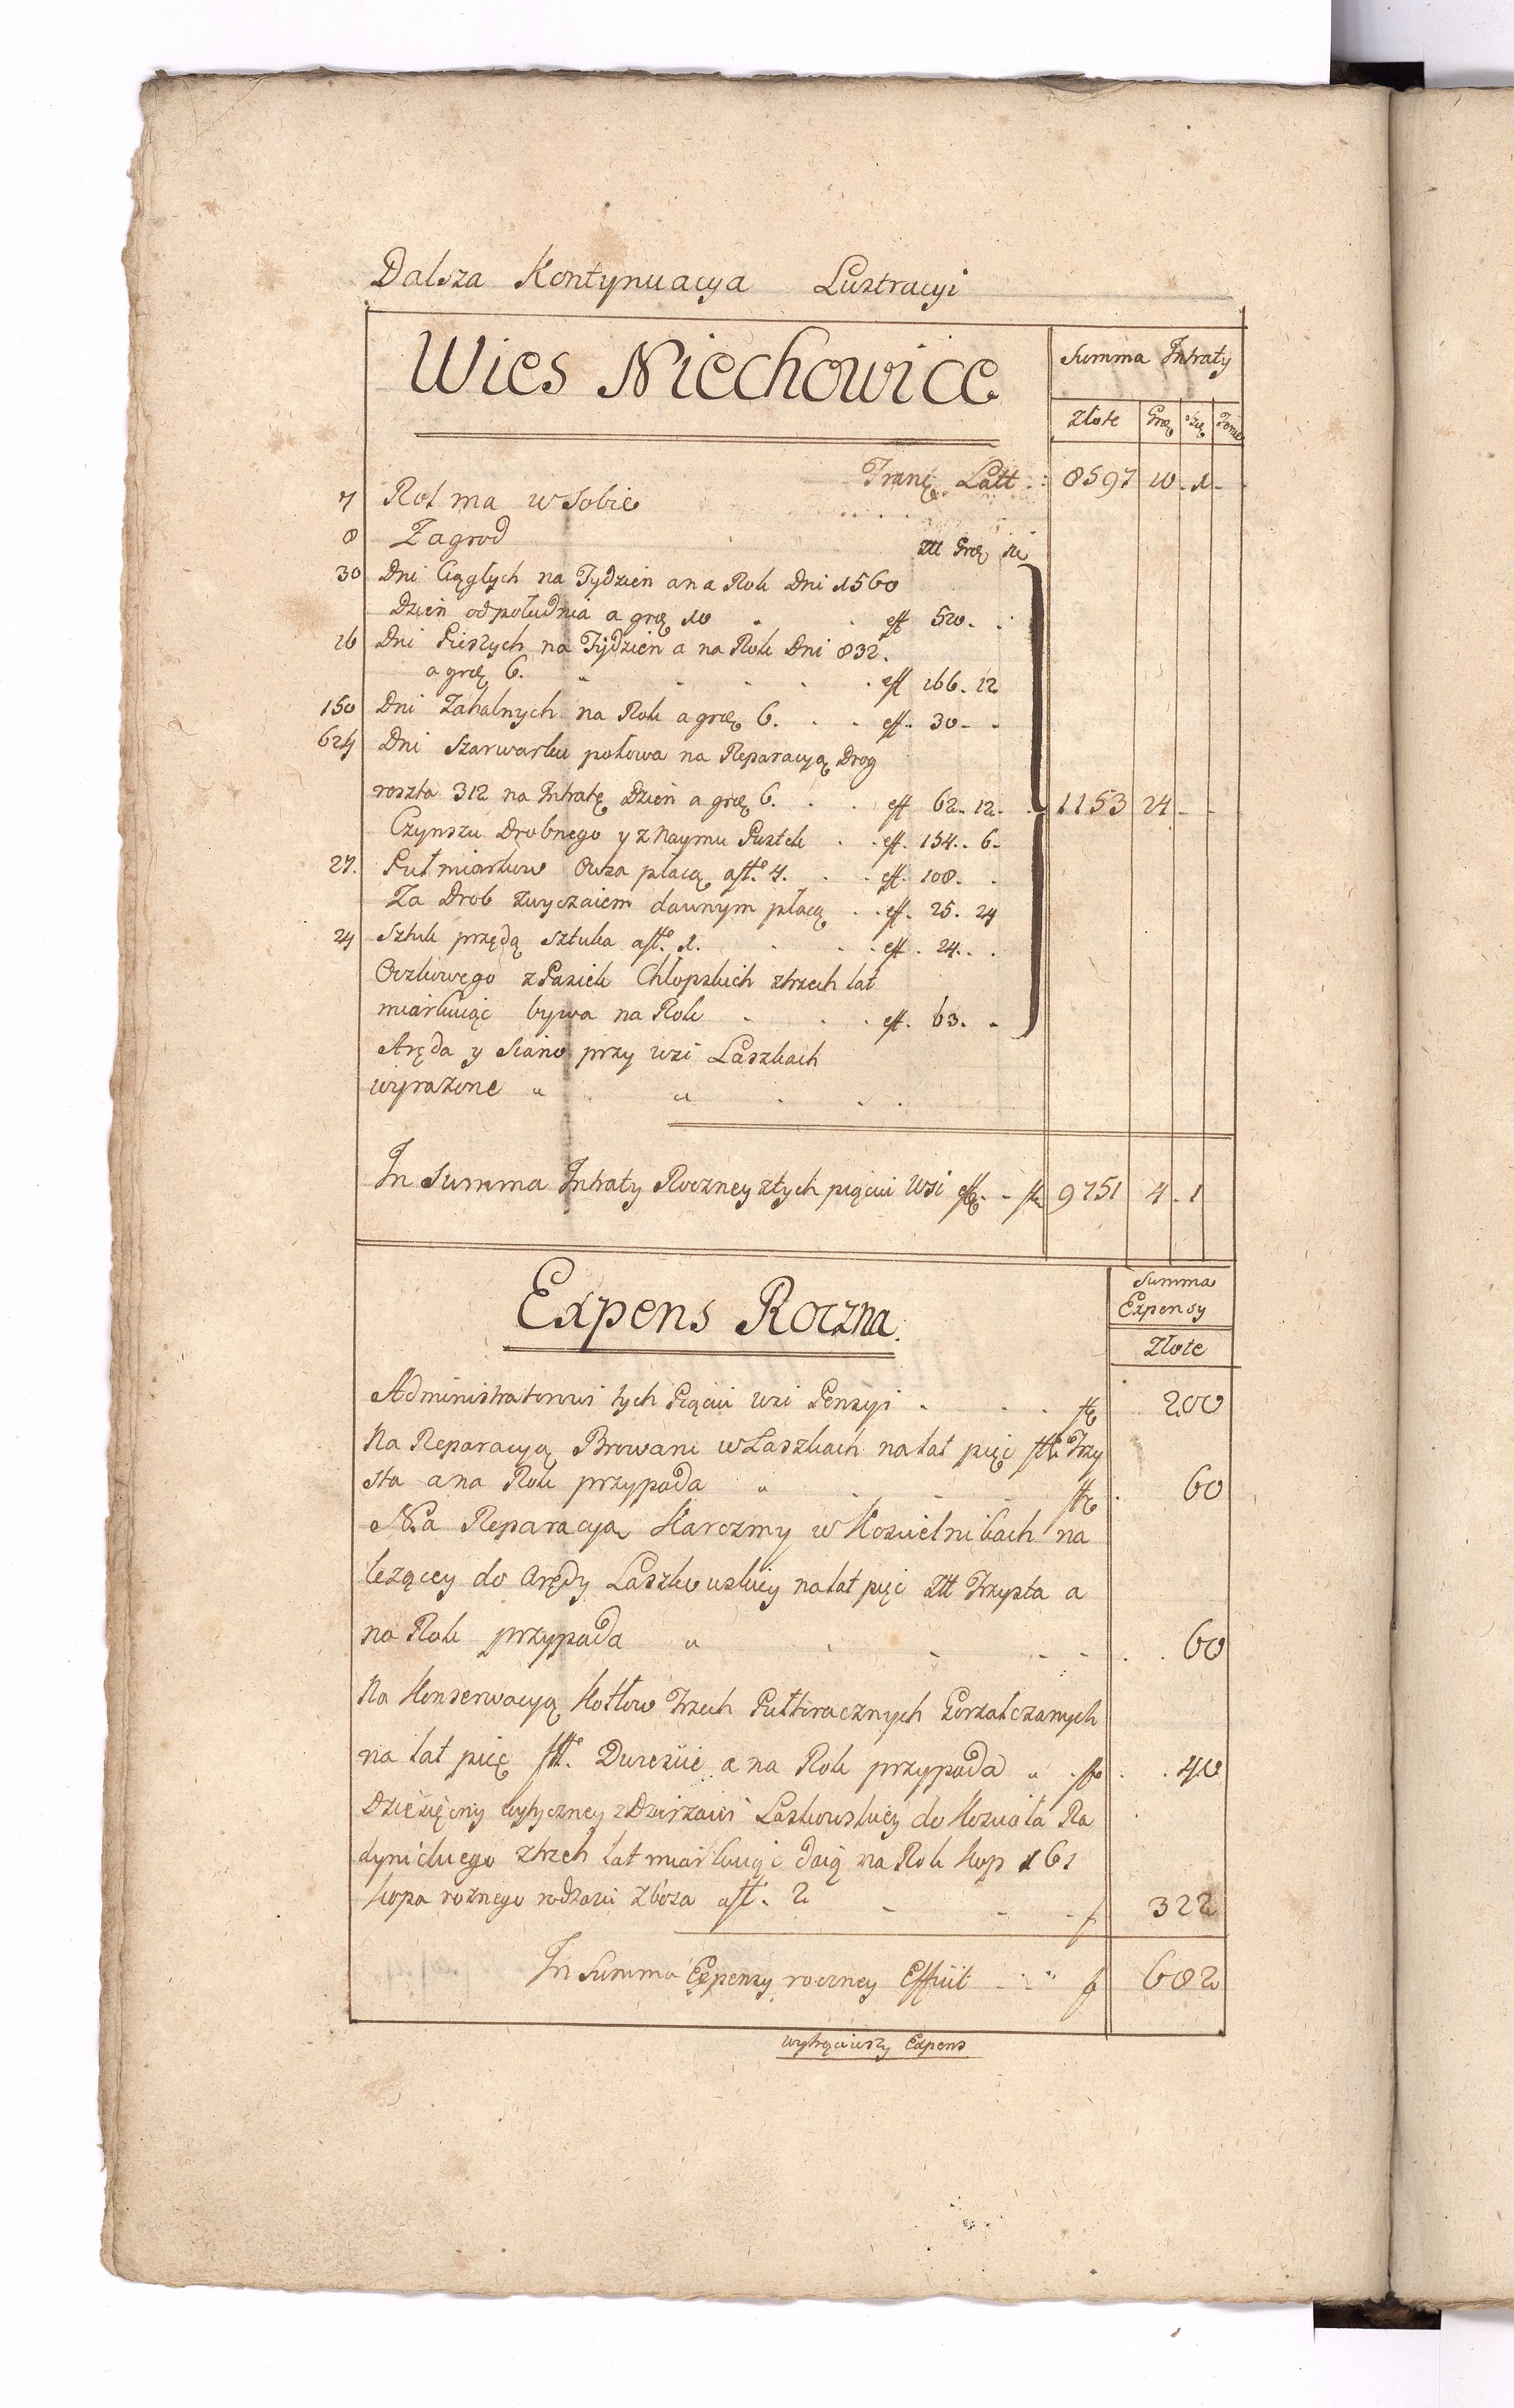 Dalsza Kontynuacya Lustracyi
Wies Niechowice
Summa Intraty
Złote Gro Sze
Latt 8597 10 - 1 -
7 Rol ma w Sobie
8 Zagrod
Złł Gro Sze
30 Dni Ciągłych na Tydzien a na Rok Dni 1560
Dzien od południa a gro 10 eff 520
16 Dni Pieszych na Tydzien a na Rok Dni 832.
a gro 6. eff 166. 12
150 Dni Zahalnych na Rok a gro 6. eff. 30
624 Dni Szarwarku połowa na Reparacyą Drog
reszta 312 na Intratę Dzien a gro 6. eff 62. 12. 1153 24 - -
Czynszu Drobnego y z Naymu Pustek eff. 154. 6
27. Puł miarkow Owsa płacą a fł. 4. eff. 108.
Za Drob zwyczaiem dawnym płacą eff. 25. 24
24 Sztuk przędą sztuka a fł. 1. eff. 24.
Oczkowego z Pasiek Chłopskich z trzech lat
miarkuiąc bywa na Rok eff. 63.
Aręda y Siano przy wsi Laszkach
wyrazone
In Summa Intraty Roczney z tych pięciu Wsi 9751 4 - 1
Expens Roczna.
Summa
Expensy
Złote
Administratorowi tych Pięciu wsi Pensyi 200
Na Reparacyą Browaru w Laszkach na lat pięc Trzy
sta a na Rok przypada 60
Na Reparacyą Karczmy w Koscielnikach na
lezącey do Arędy Laszkowskiey na lat pięc Złł Trzysta a
na Rok przypada 60
Na Konserwacyą Kotłow Trzech Gorzałczanych
na lat pięc fł. Dwiescie a na Rok przypada 40
Dziesięciny wytyczney z Dzierzawi Laszkowskiey do Koscioła Ra
dynickiego z trzech lat miarkuiąc daią na Rok kop 161
kopa roznego rodzaiu zboza a fł. 2 322
In Summa Expensy roczney Effuit 682
wytrąciwszy Expens